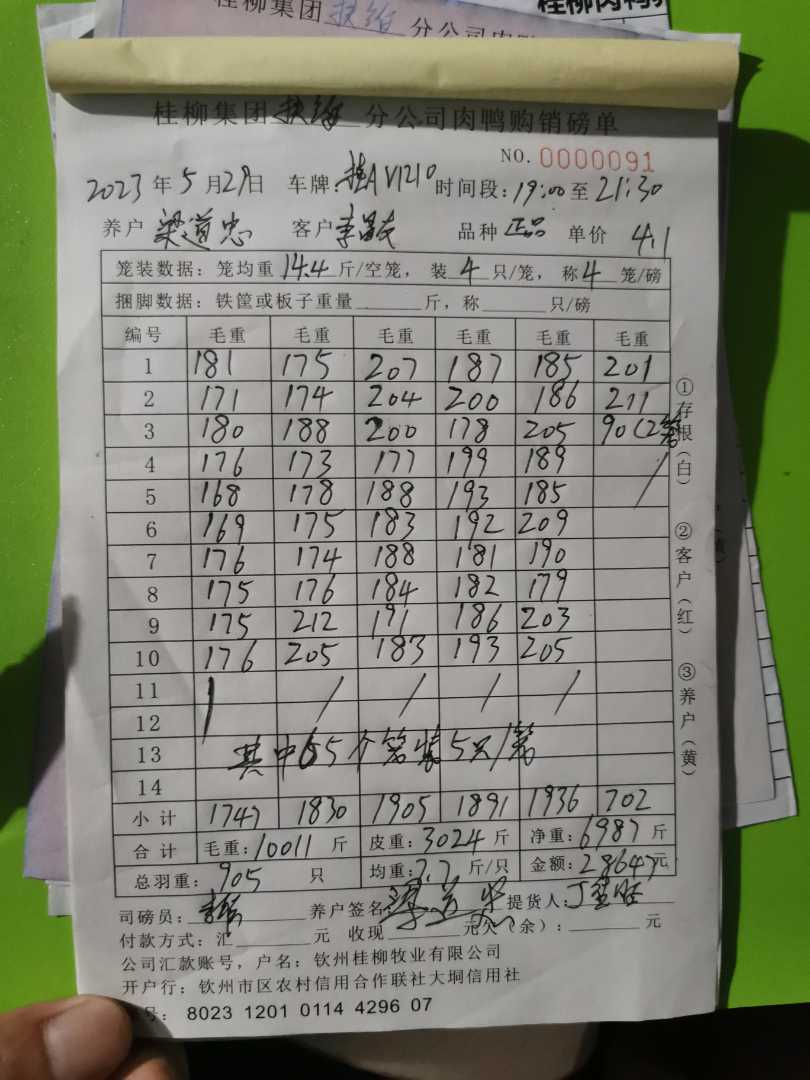 桂柳集团 分公司肉鸭
桂柳集团 分公司肉鸭购销磅单
NO. 0000091
2023年5月29日 车牌:桂AV1210 时间段:19:00至21:30
养户 梁道忠 客户 李 品种 正品 单价 4.1
笼装数据:笼均重14.4斤/空笼,装4只/笼,称4笼/磅
捆脚数据:铁筐或板子重量______斤,称______只/磅
编号 毛重 毛重 毛重 毛重 毛重 毛重
1 181 175 207 187 185 201
2 171 174 204 200 186 211
3 180 188 200 178 205 90(2笼
4 176 173 177 199 189 /
5 168 178 188 193 185
6 169 175 183 192 209
7 176 174 188 181 190
8 175 176 184 182 179
9 175 212 191 186 203
10 176 205 183 193 205
11 / / / / /
12
13 其中65个笼装5只/笼
14
小计 1747 1830 1905 1891 1936 702
合计 毛重:10011斤 皮重:3024斤 净重:6987斤
总羽重:905只 均重:7.7斤/只 金额:28647元
司磅员: 养户签名:梁道忠 提货人:丁
付款方式:汇______元 收现______元欠(余):______元
公司汇款账号,户名:钦州桂柳牧业有限公司
开户行:钦州市区农村信用合作联社大垌信用社
号:8023 1201 0114 4296 07
①存根(白) ②客户(红) ③养户(黄)